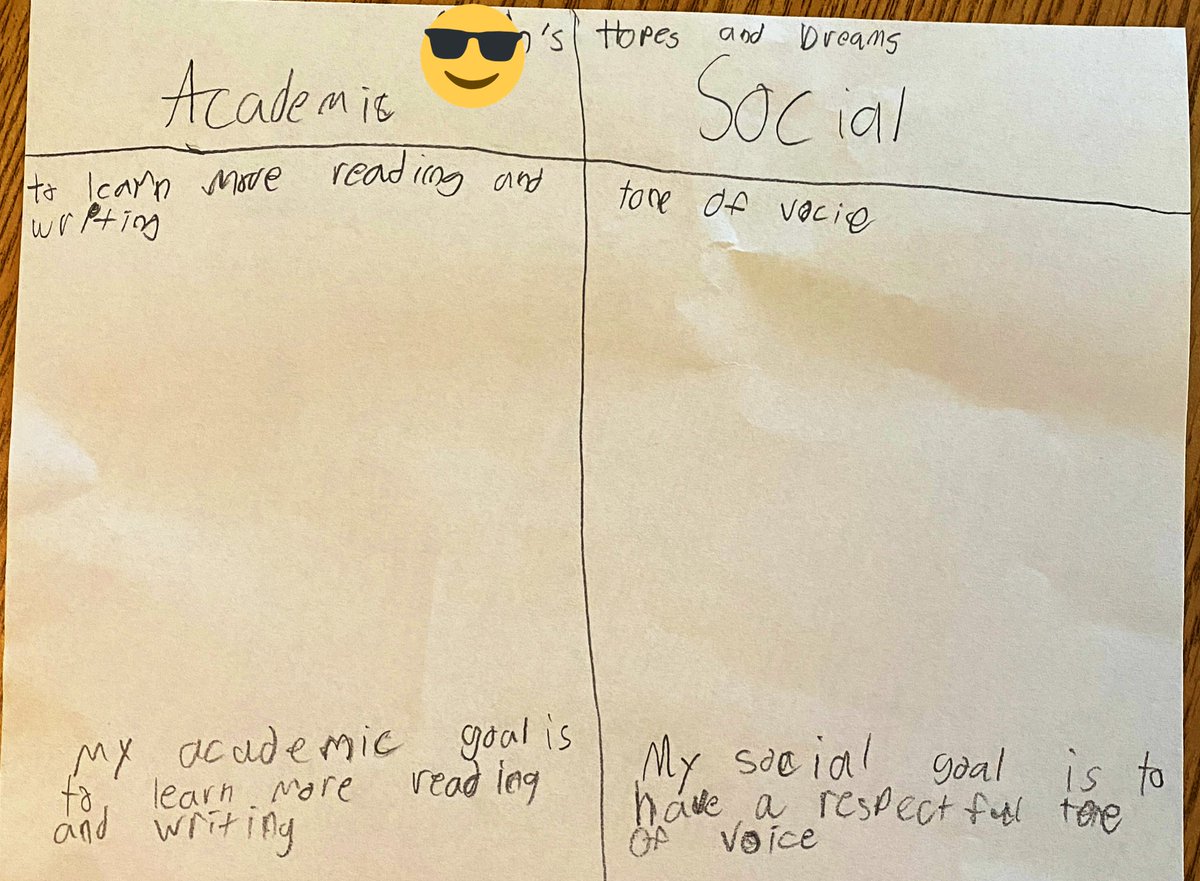 's Hopes and Dreams
Academic
Social
to learn more reading and
writing
tone of vocie
My academic goal is
to learn more reading
and writing
My social goal is to
have a respectfull tone
of voice